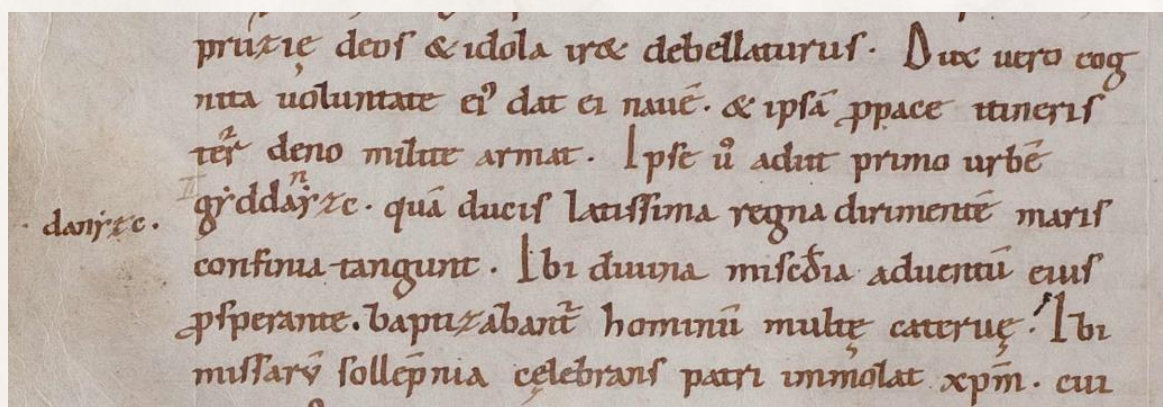 pruzıę deos & idola iræ debellaturus. Dux uero cog
nita uoluntate ei⁹ dat ei nauē. & ipsā ꝓpace itineris
ter deno milite armat. Ipse ů adiit primo urbē
gẏddanẏzc. quā ducis latissima regna dirimentē maris
danẏzc.
confinia tangunt. Ibi diuina misc̄dia aduentū eius
ꝓsperante. baptizabant᷑ hominū multę cateruę. Ibi
missarū sollēpnia cęlebrans patri immolat xp̄m. cui